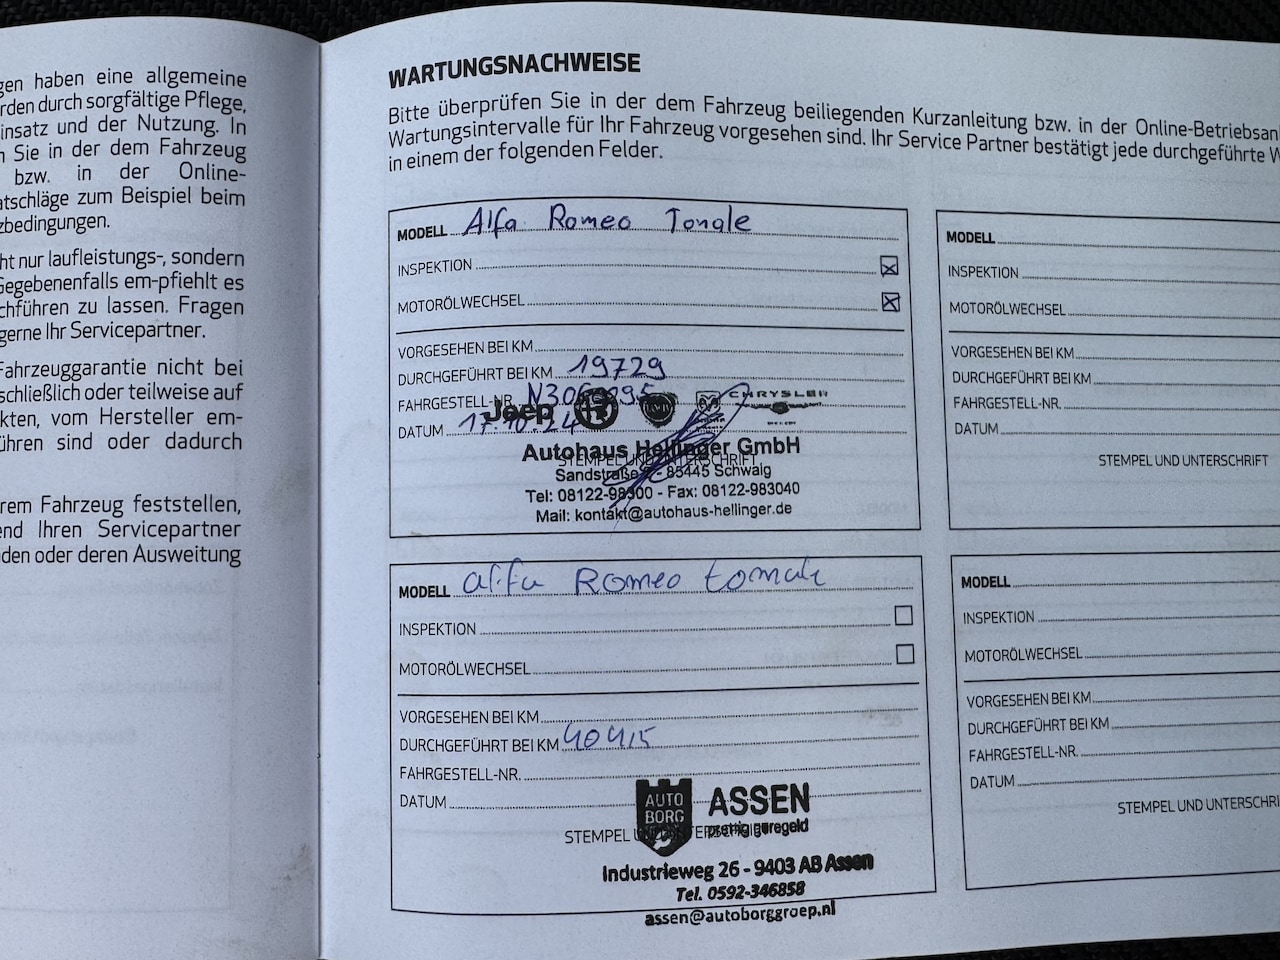 gen haben eine allgemeine
rden durch sorgfältige Pflege,
insatz und der Nutzung. In
n Sie in der dem Fahrzeug
bzw. in der Online-
atschläge zum Beispiel beim
zbedingungen.
ht nur laufleistungs-, sondern
Gegebenenfalls em-pfiehlt es
chführen zu lassen. Fragen
gerne Ihr Servicepartner.
Fahrzeuggarantie nicht bei
schließlich oder teilweise auf
kten, vom Hersteller em-
ühren sind oder dadurch
rem Fahrzeug feststellen,
end Ihren Servicepartner
den oder deren Ausweitung
WARTUNGSNACHWEISE
Bitte überprüfen Sie in der dem Fahrzeug beiliegenden Kurzanleitung bzw. in der Online-Betriebsan
Wartungsintervalle für Ihr Fahrzeug vorgesehen sind. Ihr Service Partner bestätigt jede durchgeführte W
in einem der folgenden Felder.
MODELL Alfa Romeo Tonale
INSPEKTION
MOTORÖLWECHSEL
VORGESEHEN BEI KM
DURCHGEFÜHRT BEI KM 19729
FAHRGESTELL-NR.
Jeep CHRYSLER
DATUM 17.10.24
Autohaus Hellinger GmbH
STEMPEL UND UNTERSCHRIFT
Sandstraße - 85445 Schwaig
Tel: 08122-98300 - Fax: 08122-983040
Mail: kontakt@autohaus-hellinger.de
MODELL alfa Romeo tonale
INSPEKTION
MOTORÖLWECHSEL
VORGESEHEN BEI KM
DURCHGEFÜHRT BEI KM 40415
FAHRGESTELL-NR.
DATUM
AUTO BORG ASSEN
prettig geregeld
STEMPEL UND UNTERSCHRIFT
Industrieweg 26 - 9403 AB Assen
Tel. 0592-346858
assen@autoborggroep.nl
MODELL
INSPEKTION
MOTORÖLWECHSEL
VORGESEHEN BEI KM
DURCHGEFÜHRT BEI KM
FAHRGESTELL-NR.
DATUM
STEMPEL UND UNTERSCHRIFT
MODELL
INSPEKTION
MOTORÖLWECHSEL
VORGESEHEN BEI KM
DURCHGEFÜHRT BEI KM
FAHRGESTELL-NR.
DATUM
STEMPEL UND UNTERSCHRI